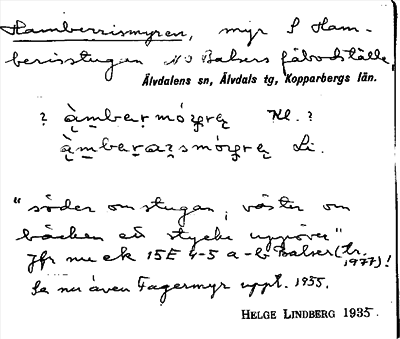 Hamberrismyren, myr S Ham-
berisstugan NO Balsers fäbodställe,
Älvdalens sn, Älvdals tg, Kopparbergs län.
? Kl. ?
Li.
"söder om stugan, väster om
bäcken ett stycke uppöver"
Jfr nu ek 15E 4-5 a-b Balser (tr.
1977)!
Se nu även Fagermyr uppt. 1935.
HELGE LINDBERG 1935.